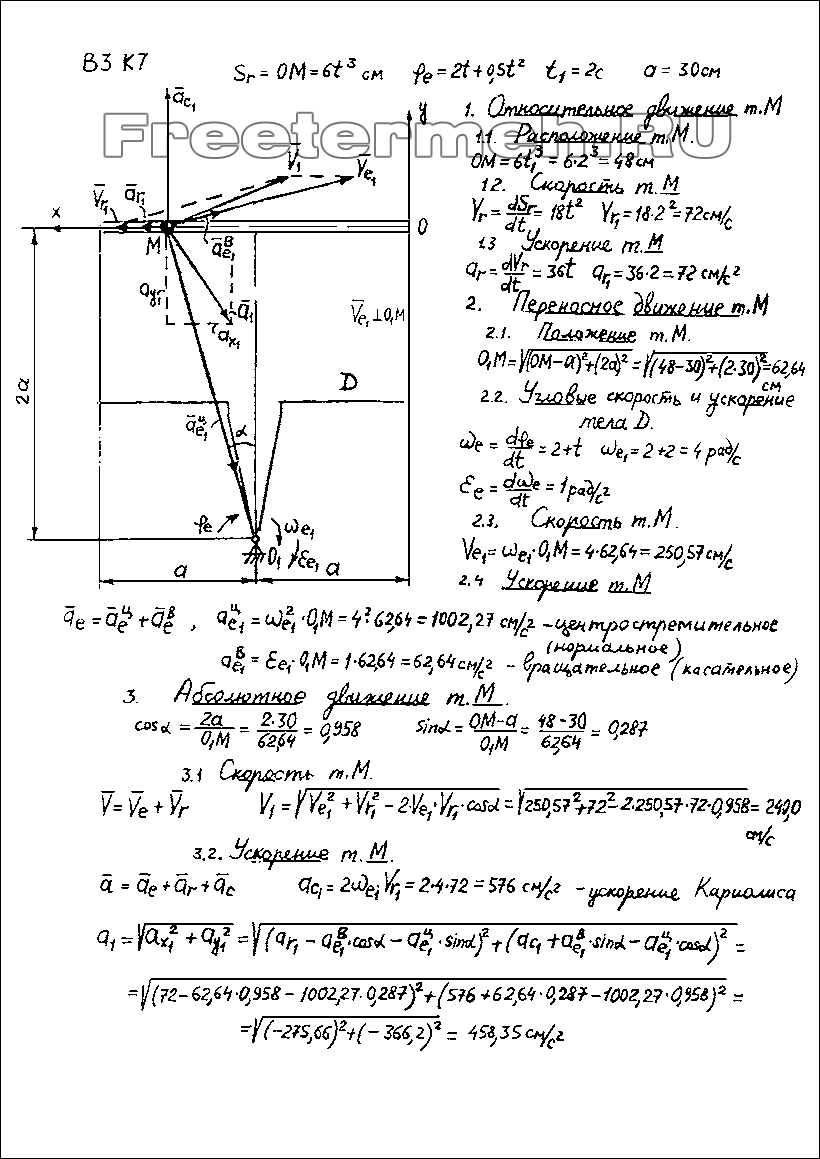 В3 К7
Sr = OM = 6t³ см φe = 2t + 0,5t² t₁ = 2с a = 30см
Freetermeh.RU
1. Относительное движение т.М
1.1. Расположение т.М.
OM = 6t₁³ = 6·2³ = 48 см
1.2. Скорость т.М
Vr = dSr/dt = 18t² Vr₁ = 18·2² = 72 см/с
1.3 Ускорение т.М
ar = dVr/dt = 36t ar₁ = 36·2 = 72 см/с²
2. Переносное движение т.М
2.1. Положение т.М.
O₁M = √((OM−a)²+(2a)²) = √((48−30)²+(2·30)²) = 62,64 см
2.2. Угловые скорость и ускорение
тела D.
ωe = dφe/dt = 2+t ωe₁ = 2+2 = 4 рад/с
εe = dωe/dt = 1 рад/с²
2.3. Скорость т.М.
Ve₁ = ωe₁·O₁M = 4·62,64 = 250,57 см/с
2.4 Ускорение т.М
āc₁
y
V̄₁
V̄e₁
V̄r₁
ār₁
x
M
O
āe₁ᴮ
ay₁
ā₁
ax₁
V̄e₁⊥O₁M
2a
D
āe₁ᶣ
α
φe
ωe₁
O₁
εe₁
a
a
āe = āeᶣ + āeᴮ , ae₁ᶣ = ωe₁²·O₁M = 4²·62,64 = 1002,27 см/с² – центростремительное
(нормальное)
ae₁ᴮ = εe₁·O₁M = 1·62,64 = 62,64 см/с² – вращательное (касательное)
3. Абсолютное движение т.М.
cosα = 2a/O₁M = 2·30/62,64 = 0,958 sinα = OM−a/O₁M = 48−30/62,64 = 0,287
3.1 Скорость т.М.
V̄ = V̄e + V̄r V₁ = √(Ve₁² + Vr₁² − 2·Ve₁·Vr₁·cosα) = √(250,57²+72²−2·250,57·72·0,958) = 240,0
см/с
3.2. Ускорение т.М.
ā = āe + ār + āc ac₁ = 2ωe₁Vr₁ = 2·4·72 = 576 см/с² – ускорение Кариолиса
a₁ = √(ax₁² + ay₁²) = √((ar₁ − ae₁ᴮ·cosα − ae₁ᶣ·sinα)² + (ac₁ + ae₁ᴮ·sinα − ae₁ᶣ·cosα)²) =
= √((72−62,64·0,958−1002,27·0,287)² + (576+62,64·0,287−1002,27·0,958)²) =
= √((−275,66)²+(−366,2)²) = 458,35 см/с²